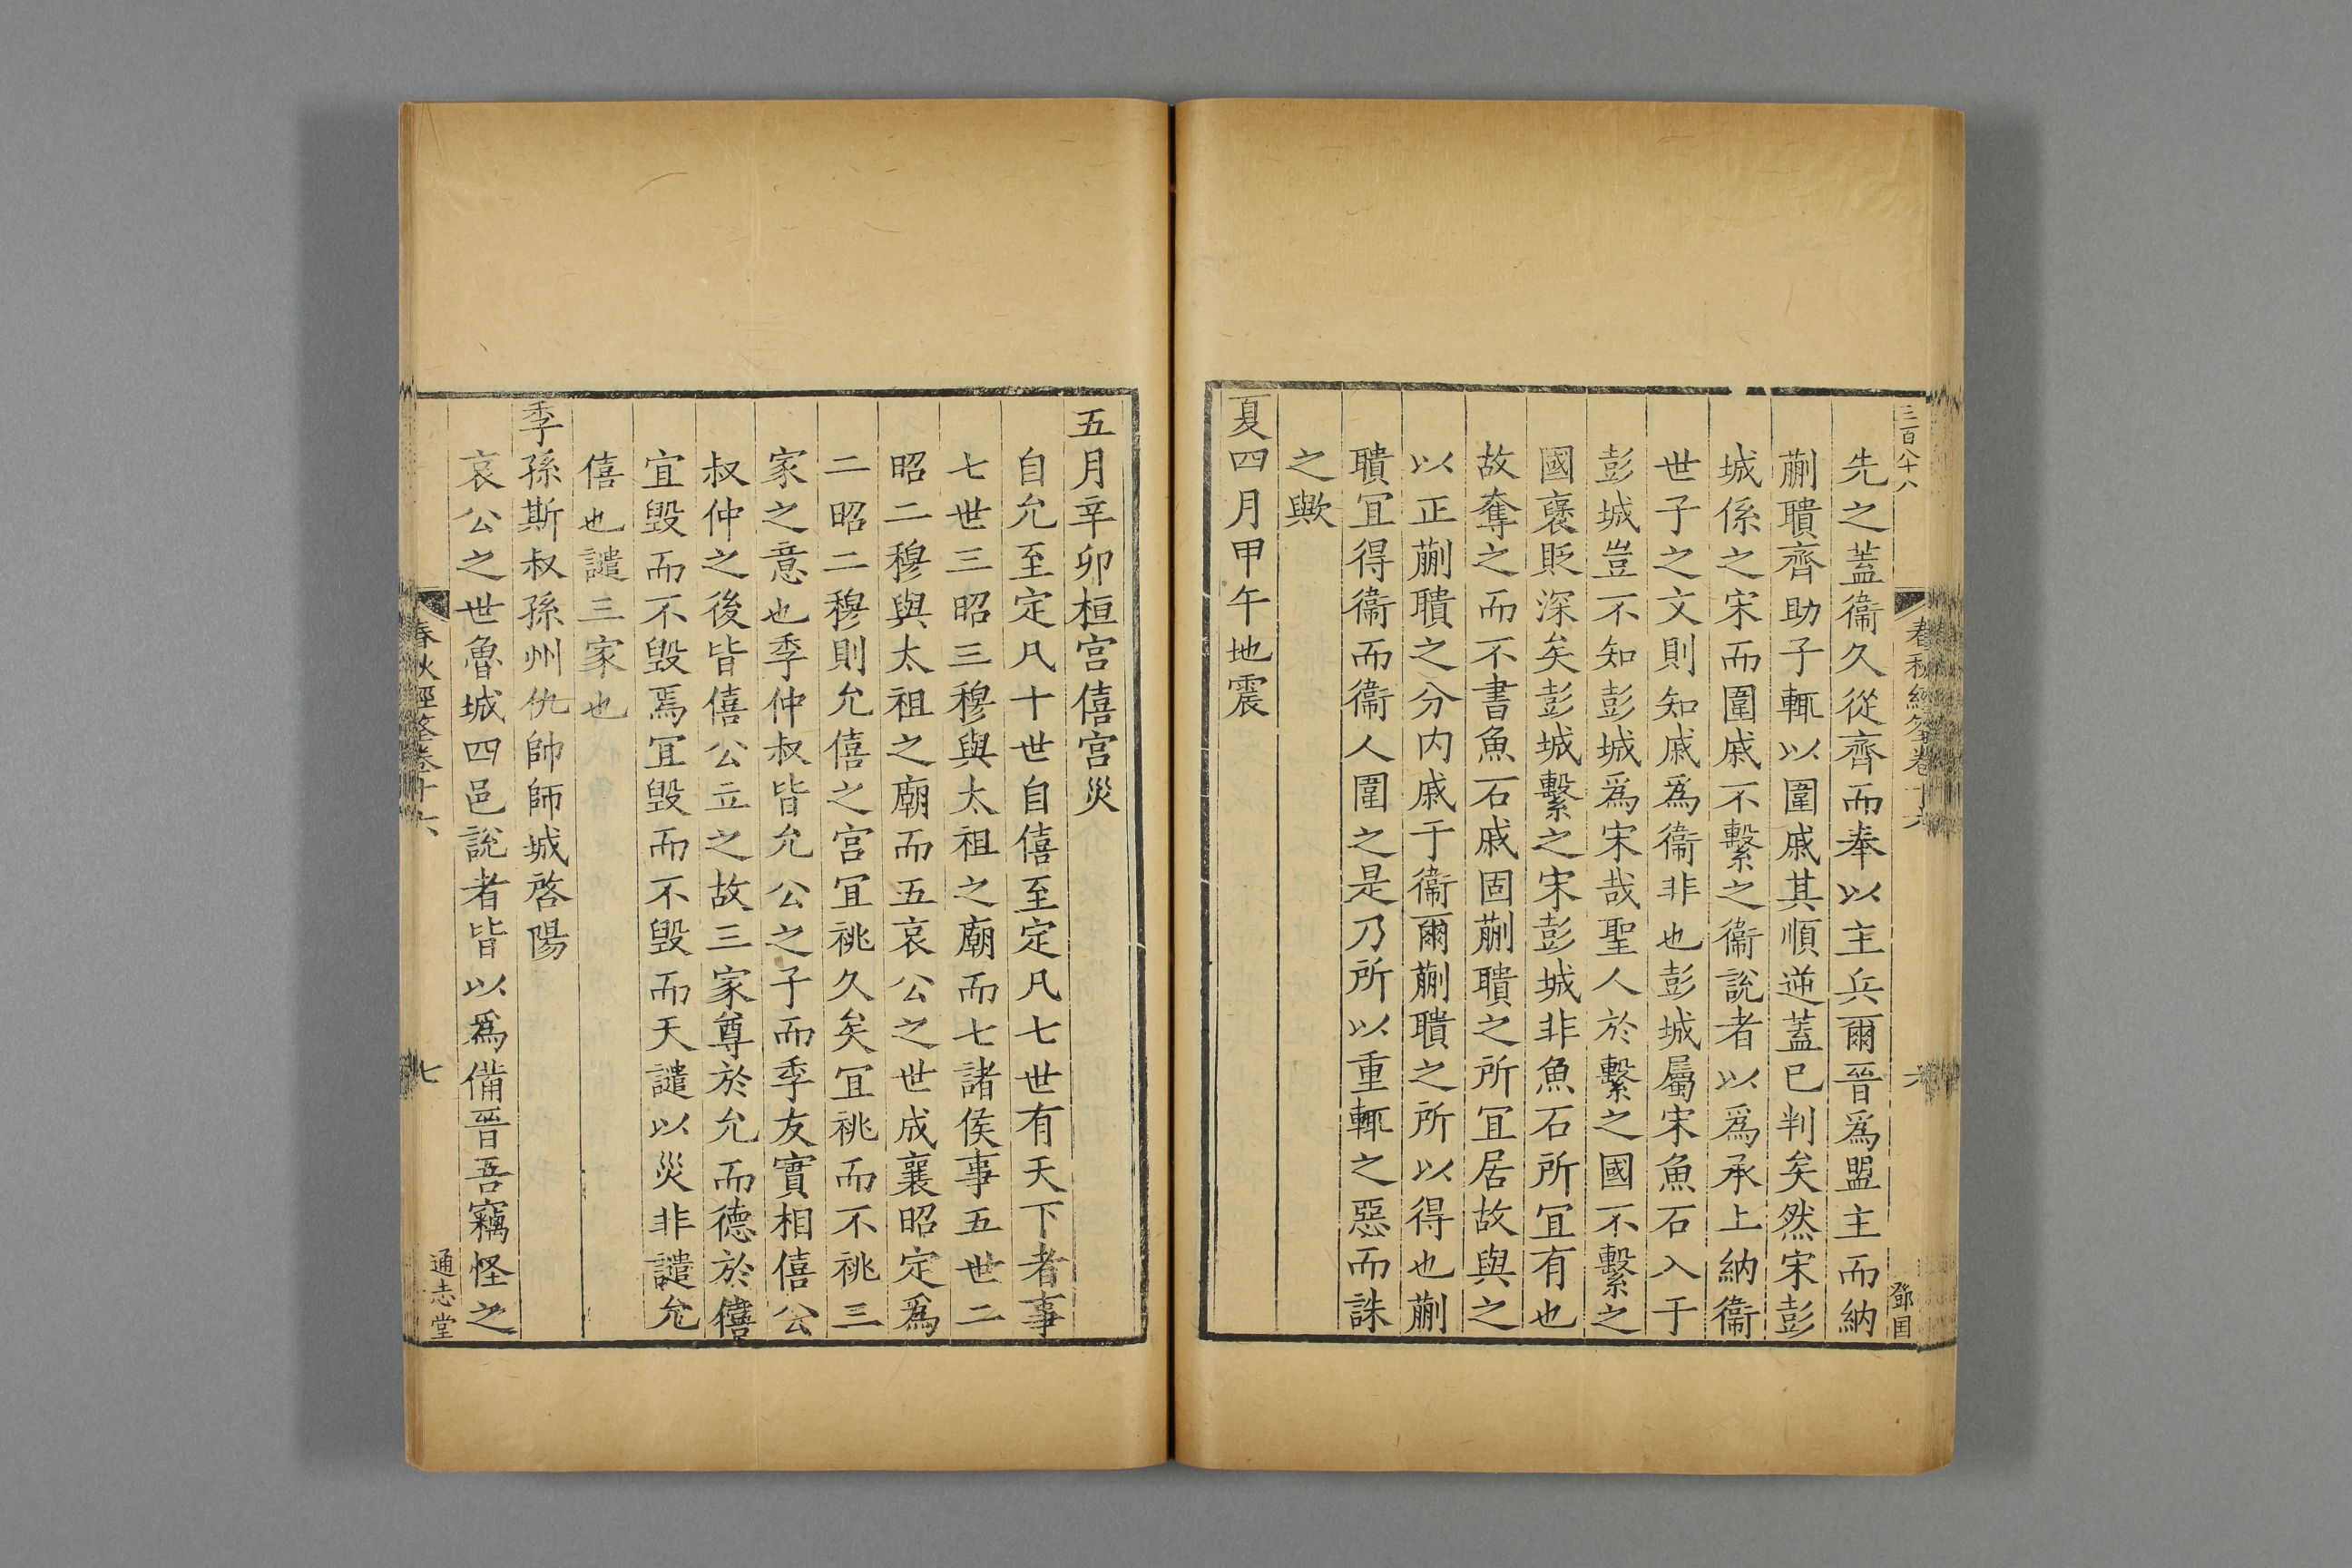 三百八十八
春秋經筌卷十六
六
鄧国
先之蓋衞久從齊而奉以主兵爾晉爲盟主而納
蒯聵齊助子輒以圍戚其順逆蓋已判矣然宋彭
城係之宋而圍戚不繫之衞說者以爲承上納衞
世子之文則知戚爲衞非也彭城屬宋魚石入于
彭城豈不知彭城爲宋哉聖人於繫之國不繫之
國襃貶深矣彭城繫之宋彭城非魚石所冝有也
故奪之而不書魚石戚固蒯聵之所冝居故與之
以正蒯聵之分内戚于衞爾蒯聵之所以得也蒯
聵冝得衞而衞人圍之是乃所以重輒之惡而誅
之歟
夏四月甲午地震
五月辛卯桓宫僖宫災
自允至定凡十世自僖至定凡七世有天下者事
七世三昭三穆與太祖之廟而七諸侯事五世二
昭二穆與太祖之廟而五哀公之世成襄昭定爲
二昭二穆則允僖之宫冝祧久矣冝祧而不祧三
家之意也季仲叔皆允公之子而季友實相僖公
叔仲之後皆僖公立之故三家尊於允而德於僖
宜毀而不毀焉冝毀而不毀而天譴以災非譴允
僖也譴三家也
季孫斯叔孫州仇帥師城啓陽
哀公之世魯城四邑說者皆以爲備晉吾竊怪之
春秋經筌卷十六
七
通志堂